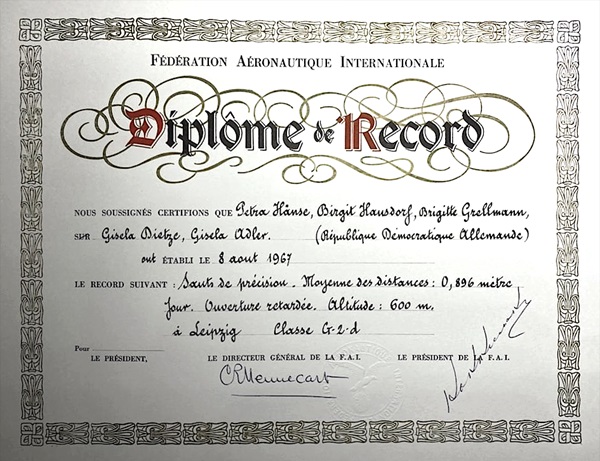 FÉDÉRATION AÉRONAUTIQUE INTERNATIONALE
Diplôme de Record
NOUS SOUSSIGNÉS CERTIFIONS QUE Petra Hänse, Birgit Hausdorf, Brigitte Grellmann,
SUR Gisela Dietze, Gisela Adler. (République Démocratique Allemande)
ont ÉTABLI LE 8 aout 1967
LE RECORD SUIVANT : Sauts de précision. Moyenne des distances: 0,896 mètre
Jour. Ouverture retardée. Altitude: 600 m.
à Leipzig Classe G-2-d
Pour
LE PRÉSIDENT, LE DIRECTEUR GÉNÉRAL DE LA F.A.I. LE PRÉSIDENT DE LA F.A.I.